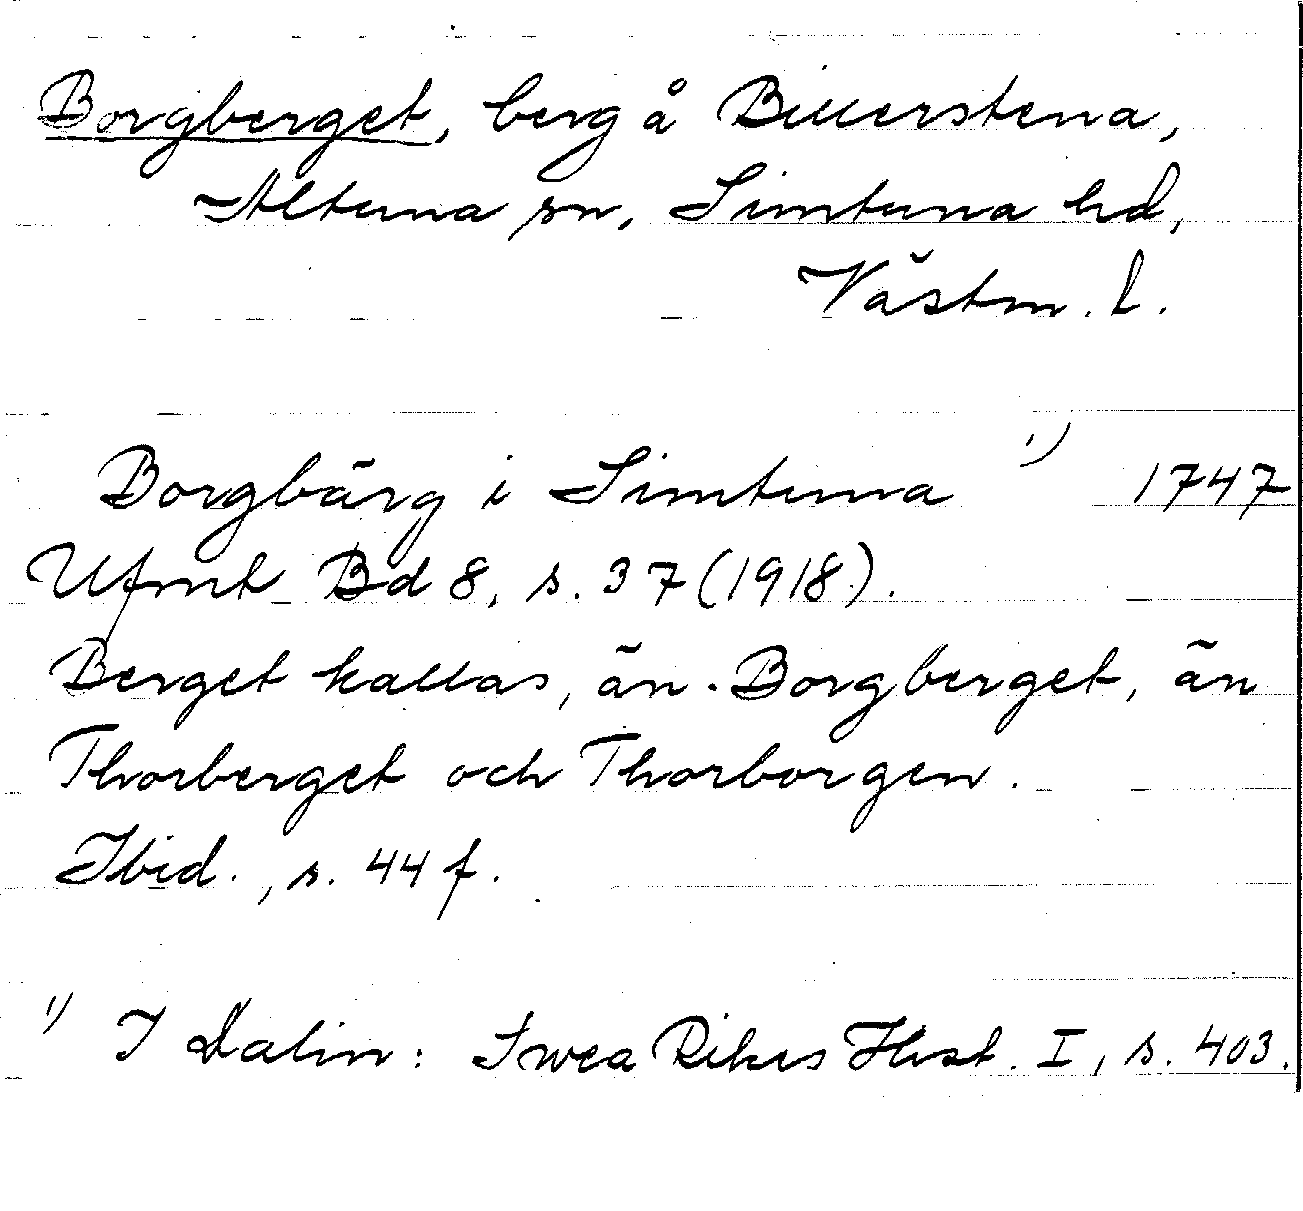 Borgberget, berg å Billerstena,
Altuna sn, Simtuna hd,
Västm. l.
Borgbärg i Simtuna ¹⁾ 1747
Ufmt Bd 8, s. 37 (1918).
Berget kallas, än Borgberget, än
Thorberget och Thorborgen.
Ibid., s. 44 f.
¹⁾ I Dalin: Swea Rikes Hist. I, s. 403.